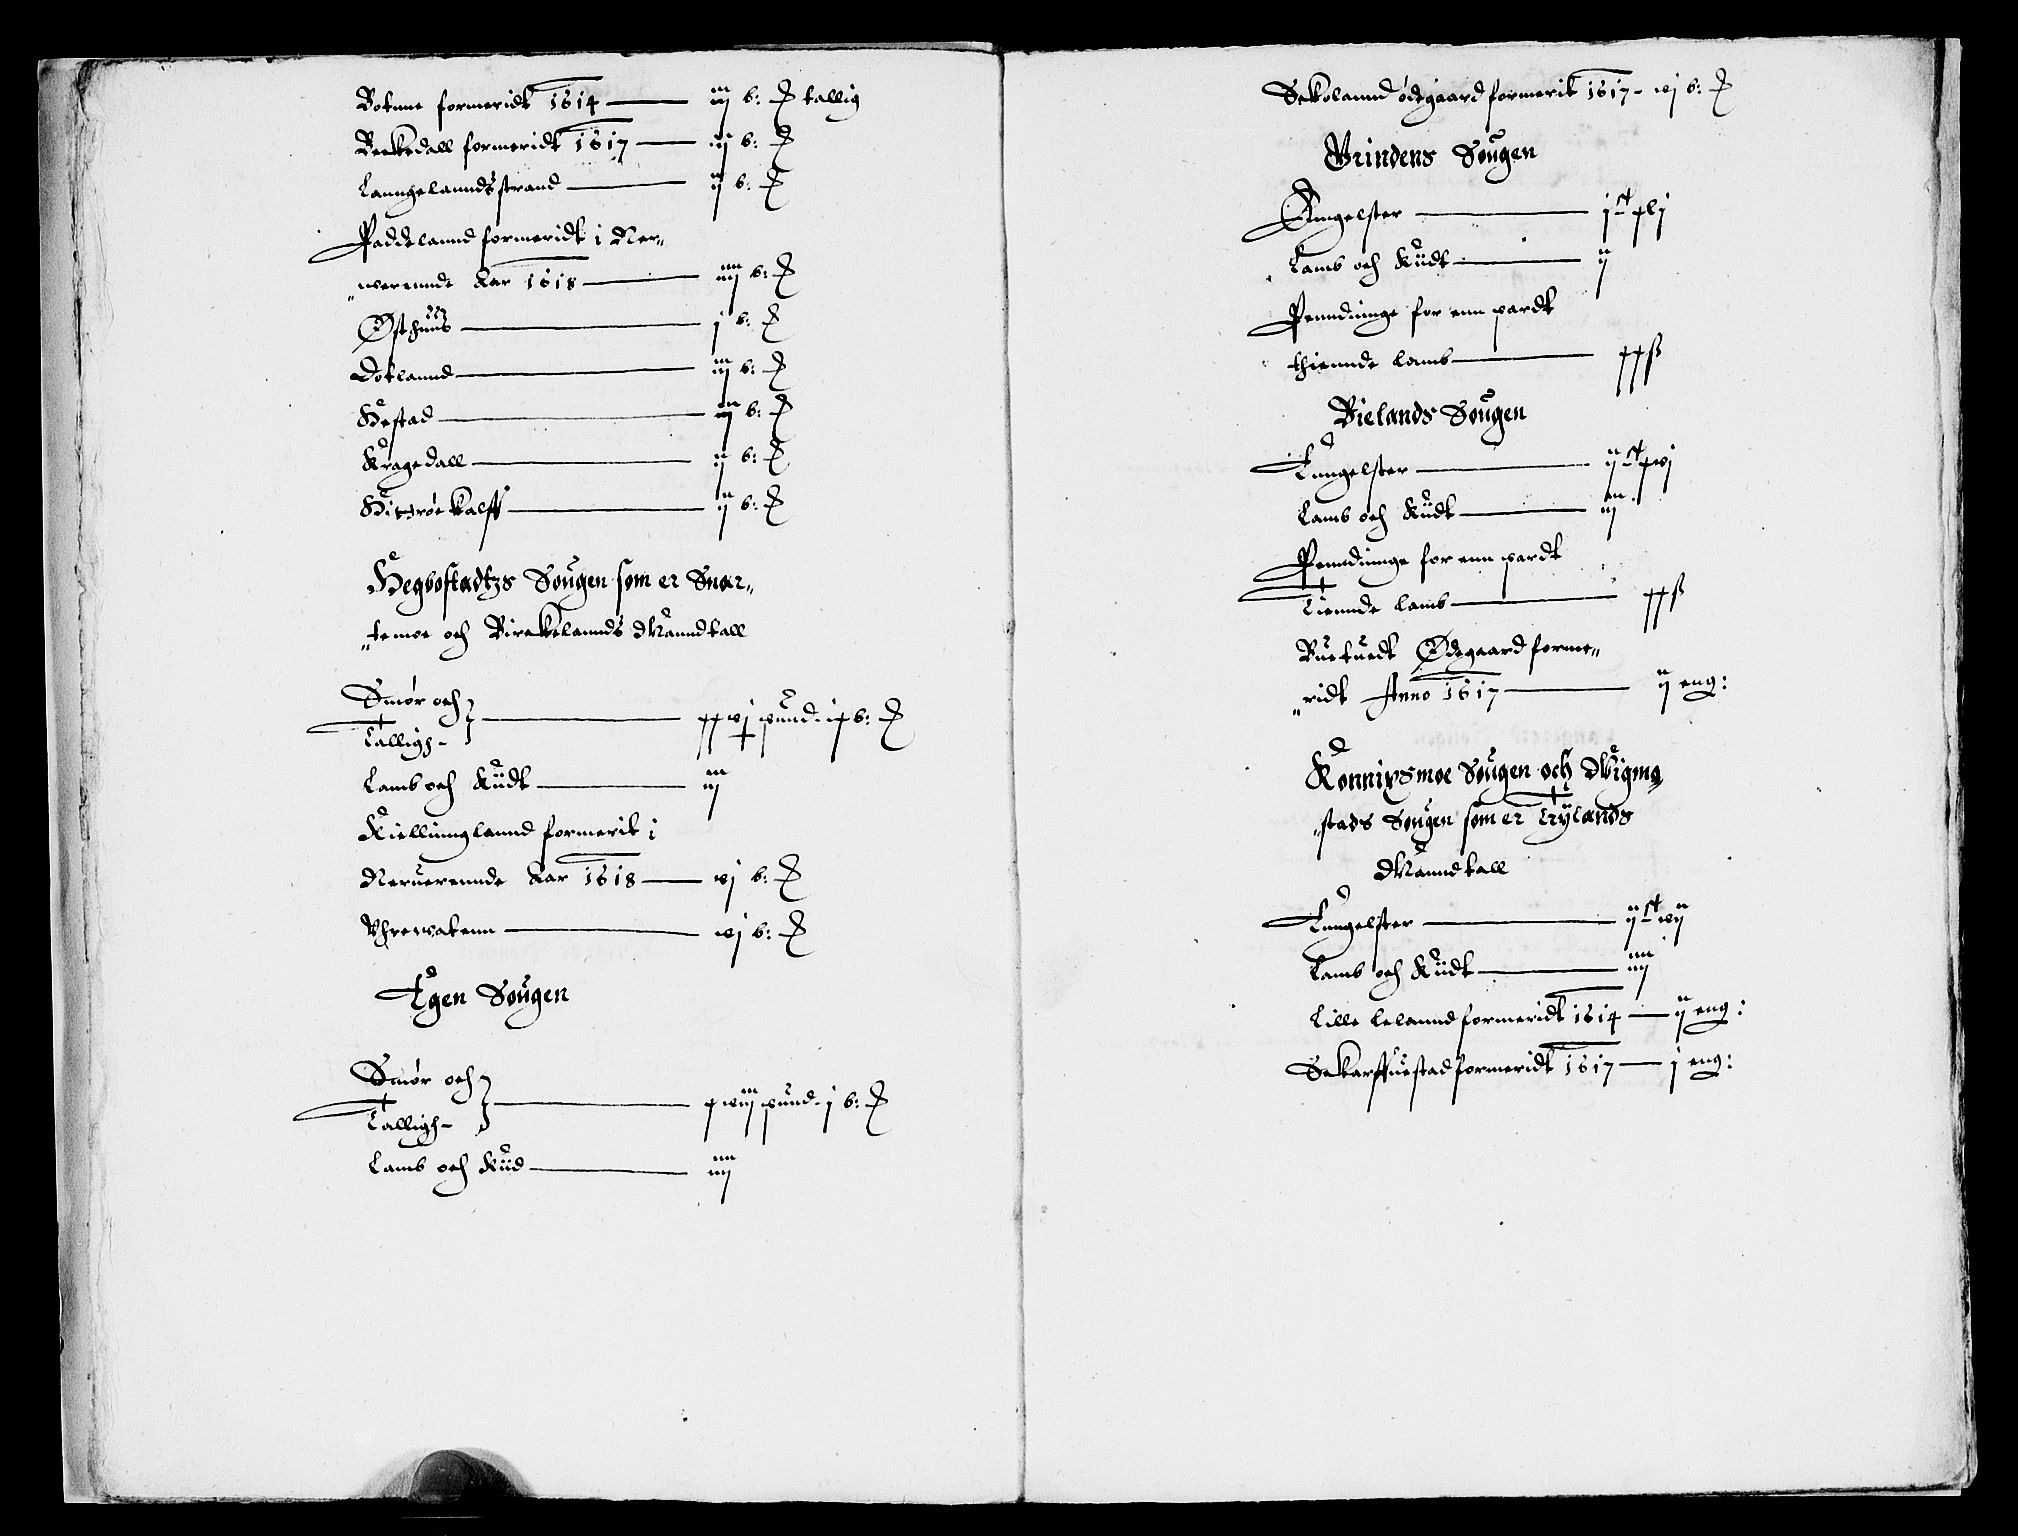 Botnne formeridt 1614 — iij b: ℔ tallig
Beckedall formeridt 1617 — iij b: ℔
Lanngelanndsstrand — ij b: ℔
Paddelannd formeridt i Ner„
„werennde Aar 1618 — iiij b: ℔
Østhuus — j b: ℔
Dotlannd — iij b: ℔
Hestad — iij b: ℔
Kragedall — ij b: ℔
Hitterøe kalff — ij b: ℔
Hegbostadtzs Sougen som er Snar„
„temoe och Birckelannds Manndtall
Smør och
Talligh — xxvj pund ix b: ℔
Lamb och Kiidt — iij
Kiellinnglannd formerit i
Neruerennde Aar 1618 — vj b: ℔
Vhrewatenn — vj b: ℔
Egen Sougen
Smør och
Talligh — xviij pund j b: ℔
Lamb och Kiid — iiij
Sckolannd ødegaard formerit 1617 — vj b: ℔
Vrindens Sougen
Enngelster — j st xlj
Lamb och Kiidt — ij
Penndinnge for enn pardt
thiennde lamb — xx ß
Bielands Sougen
Enngelster — ij st xvj
Lamb och Kiidt — iij
Penndinnge for enn pardt
Tiennde lamb — xx ß
Buetuedt Ødegaard forme„
„ridt Anno 1617 — ij eng:
Konnixsmoe Sougen och Øigmo„
„stads Sougen som er Trylands
Manndtall
Enngelster — ij st vij
Lamb och Kiidt — iiij
Lille Lelannd formeridt 1614 — ij eng:
Sckarffuestad formeridt 1617 — j eng: